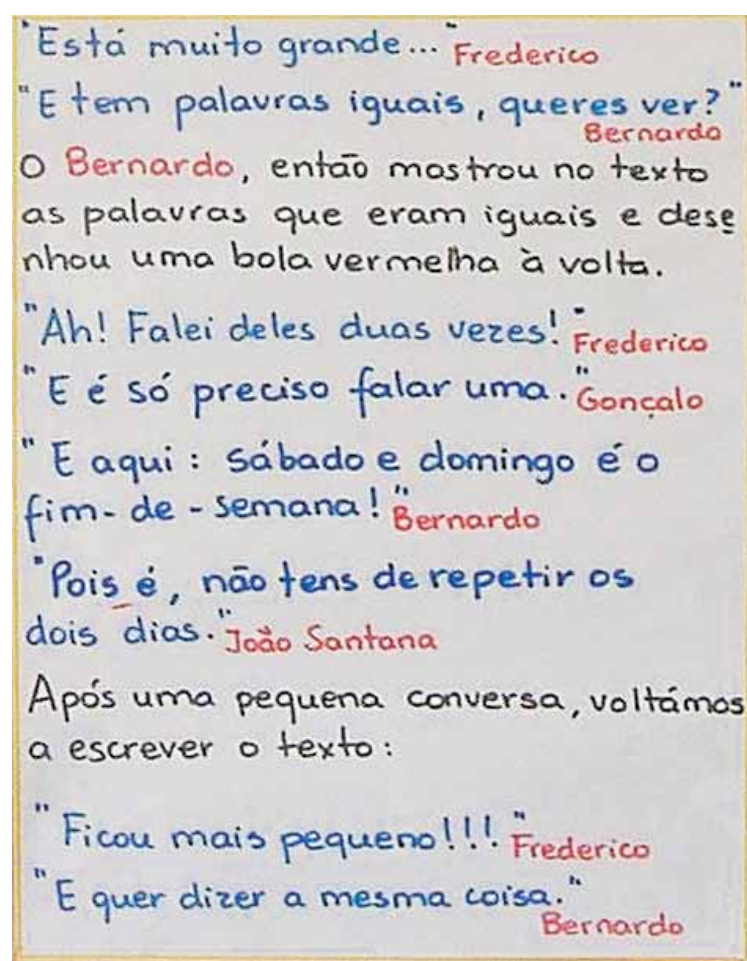 "Está muito grande..." Frederico
"E tem palavras iguais, queres ver?"
Bernardo
O Bernardo, então mostrou no texto
as palavras que eram iguais e dese
nhou uma bola vermelha à volta.
"Ah! Falei deles duas vezes!" Frederico
"E é só preciso falar uma." Gonçalo
"E aqui: sábado e domingo é o
fim-de-semana!" Bernardo
"Pois é, não tens de repetir os
dois dias." João Santana
Após uma pequena conversa, voltámos
a escrever o texto:
"Ficou mais pequeno!!!" Frederico
"E quer dizer a mesma coisa."
Bernardo